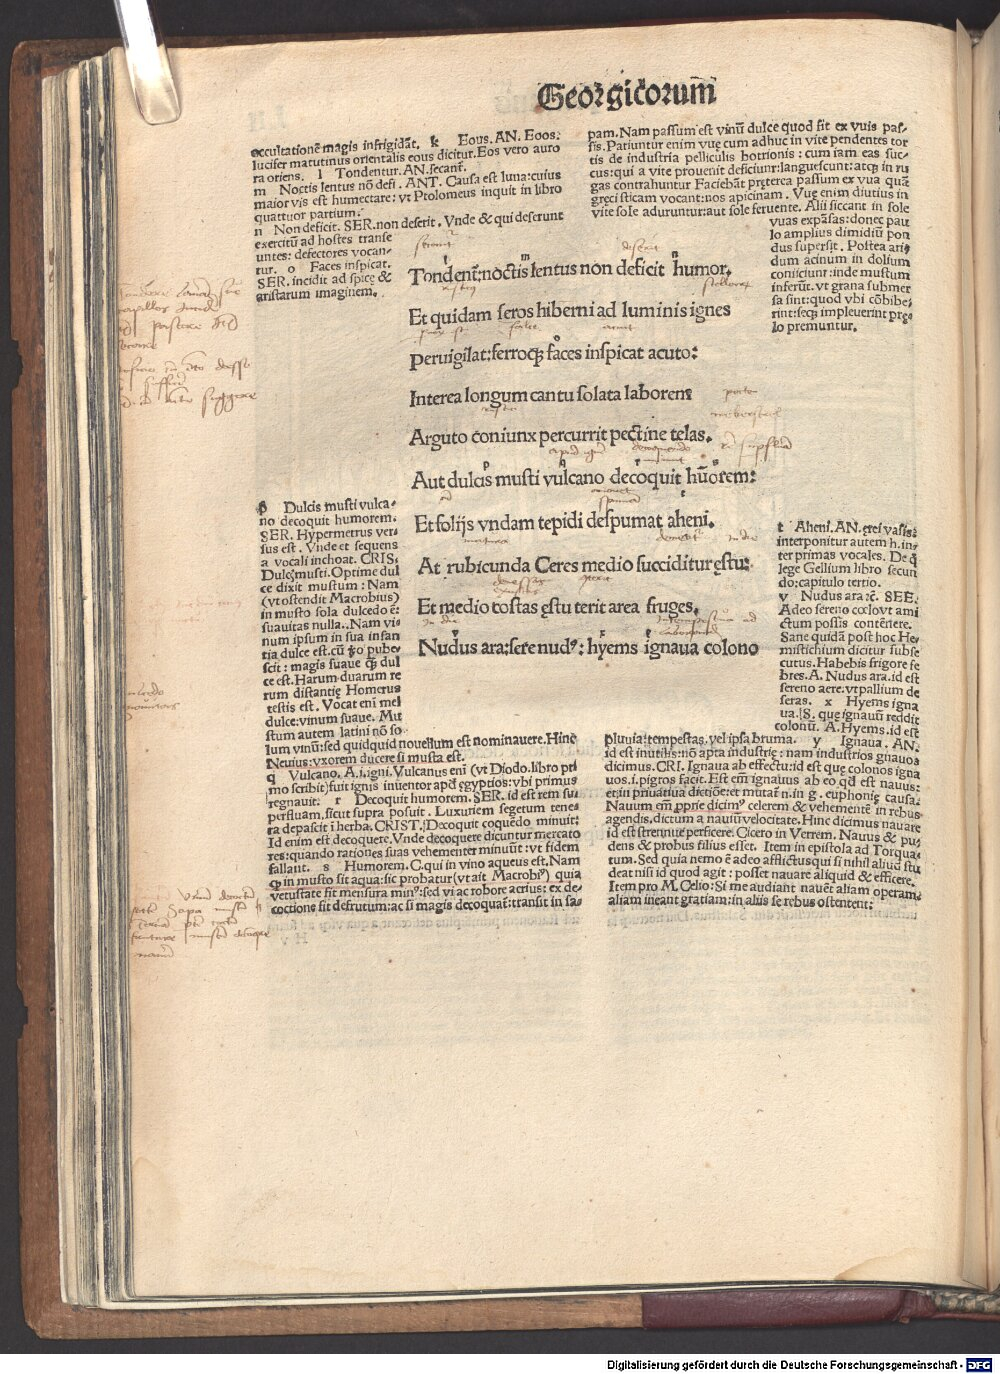 Georgicorum̃
occultationē magis infrigidãt, k Eous. AN. Eoos.
lucifer matutinus orientalis eous dicitur. Eos vero auro
ra oriens. l Tondentur. AN. secant̃.
m Noctis lentus nõ defi. ANT. Causa est luna: cuius
maior vis est humectare: vt Ptolomeus inquit in libro
quattuor partium.
n Non deficit. SER. non deserit. Vnde & qui deserunt
exercitũ ad hostes transe
untes: defectores vocan-
tur. o Faces inspicat.
SER. incidit ad spicę &
aristarum imaginem.
pam. Nam passum est vinũ dulce quod fit ex vuis pas-
sis. Patiuntur enim vuę cum adhuc in vite pendentes tor
tis de industria pelliculis botrionis: cum iam eas suc-
cus: qui a vite prouenit deficiunt: languescunt: atq; in ru
gas contrahuntur Faciebãt pręterea passum ex vua quã
gręci sticam vocant: nos apicinam. Vuę enim diutius in
vite sole aduruntur: aut sole feruente. Alii siccant in sole
vuas expãsas: donec pau
lo amplius dimidiũ pon
dus supersit. Postea ari-
dum acinum in dolium
coniiciunt: inde mustum
inferũt. vt grana submer
sa sint: quod vbi cõbibe-
rint: seq; impleuerint prę-
lo premuntur.
Tondent̃: noctis lentus non deficit humor.
Et quidam seros hiberni ad luminis ignes
Peruigilat: ferroq; faces inspicat acuto:
Interea longum cantu solata laborem
Arguto coniunx percurrit pectine telas.
Aut dulcis musti vulcano decoquit hũorem:
Et folijs vndam tepidi despumat aheni.
At rubicunda Ceres medio succiditur ęstu:
Et medio tostas ęstu terit area fruges.
Nudus ara: sere nudꝰ: hyems ignaua colono
p Dulcis musti vulca-
no decoquit humorem.
SER. Hypermetrus ver-
sus est. Vnde et sequens
a vocali inchoat. CRIS.
Dulcę musti. Optime dul
ce dixit mustum: Nam
(vt ostendit Macrobius)
in musto sola dulcedo ē:
suauitas nulla.. Nam vi-
num ipsum in sua infan
tia dulce est. cũ ꝓo pube-
scit: magis suaue q̃ dul
ce est. Harum duarum re
rum distantię Homerus
testis est. Vocat eni mel
dulce: vinum suaue. Mu
stum autem latini nõ so
lum vinũ: sed quidquid nouellum est nominauere. Hinc
Neuius: vxorem ducere si musta est.
q Vulcano. A. i. igni. Vulcanus eni (vt Diodo. libro pri
mo scribit) fuit ignis inuentor apđ ęgyptios: vbi primus
regnauit: r Decoquit humorem. SER. id est rem su-
perfluam, sicut supra posuit. Luxuriem segetum tene-
ra depascit ĩ herba. CRIST. Decoquit coquẽdo minuit:
Id enim est decoquere. Vnde decoquere dicuntur mercato
res: quando rationes suas vehementer minuũt: vt fidem
fallant. s Humorem. C. qui in vino aqueus est. Nam
q in musto sit aqua: sic probatur (vt ait Macrobiꝰ) quia
vetustate fit mensura minꝰ: sed vi ac robore acrius: ex de-
coctione fit defrutum: ac si magis decoquat: transit in sa-
t Aheni. AN. ęrei vasis:
interponitur autem h. in-
ter primas vocales. De q̃
lege Gellium libro secun
do: capitulo tertio.
v Nudus ara ⁊c. SER.
Adeo sereno cœlo vt ami
ctum possis contẽnere.
Sane quidã post hoc He
mistichium dicitur subse
cutus. Habebis frigore fe
bres. A. Nudus ara. id est
sereno aere. vt pallium de
seras. x Hyems igna
ua. S. que ignauũ reddit
colonũ. A. Hyems. id est
pluuia: tempestas. vel ipsa bruma. y Ignaua. AN.
id est inutilis: nõ apta industrię: nam industrios gnauos
dicimus. CRI. Ignaua ab effectu: id est que colonos igna
uos. i. pigros facit. Est em̃ ignauus ab eo qđ est nauus:
et: in priuatiua dictiõe: et mutat̃ n. in g. euphonię causa.
Nauum em̃ pprie dicimꝰ celerem & vehementẽ in rebus
agendis. dictum a nauiũ velocitate. Hinc dicimus nauare
id est strennue perficere. Cicero in Verrem. Nauus & pu-
dens & probus filius esset. Item in epistola ad Torqua-
tum. Sed quia nemo ē adeo afflictus qui si nihil aliud stu
deat nisi id quod agit: posset nauare aliquid & efficere.
Item pro M. Celio: Si me audiant nauet̃ aliam operam:
aliam ineant gratiam: in aliis se rebus ostentent:
Digitalisierung gefördert durch die Deutsche Forschungsgemeinschaft - DFG